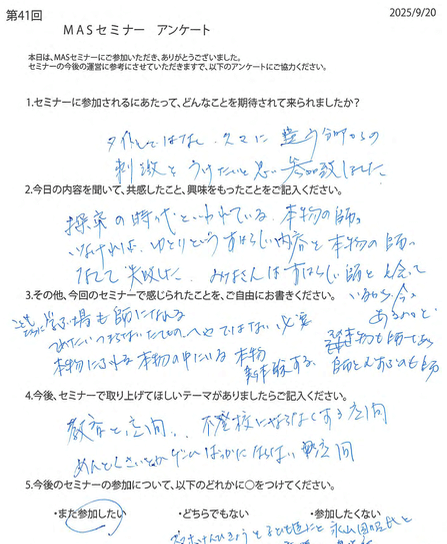 第41回
2025/9/20
MASセミナー アンケート
本日は、MASセミナーにご参加いただき、ありがとうございました。
セミナーの今後の運営に参考にさせていただきますで、以下のアンケートにご協力ください。
1.セミナーに参加されるにあたって、どんなことを期待されて来られましたか?
としてはなく、久々に違う分野からの
刺激をうけたいと思い参加致しました
2.今日の内容を聞いて、共感したこと、興味をもったことをご記入ください。
探究の時代といわれている。本物の師。
いなければ、ゆとりというすばらしい内容も本物の師。
なくて失敗した。みなさんはすばらしい師と出会って
いるから、今
3.その他、今回のセミナーで感じられたことを、ご自由にお書きください。
あるのかと
場も師になる
つめたい つまらない たてもの、へやではない 必要
本物にふれる 本物の中にいる 本物
4.今後、セミナーで取り上げてほしいテーマがありましたらご記入ください。
教育と空間.. 不登校にならなくする空間
めんどくさいとか ゲームばっかにならない 空間
5.今後のセミナーの参加について、以下のどれかに○をつけてください。
・また参加したい ・どちらでもない ・参加したくない